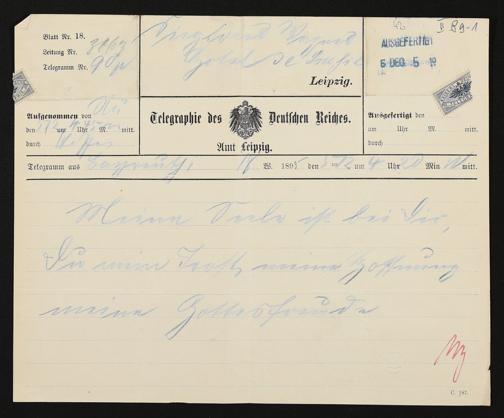 Blatt Nr. 18.
Leitung Nr.
Telegramm Nr.
Siegfried Wagner
Hotel de
Leipzig.
AUSGEFERTIGT
5 DEC 5
Aufgenommen von
den um Uhr M. mitt.
durch
Telegraphie des Deutschen Reiches.
Amt Leipzig.
Ausgefertigt den
um Uhr M. mitt.
durch
Telegramm aus Bayreuth, W. 189 den um 4 Uhr Min mitt.
Meine Seele ist bei Dir,
Du mein Trost, meine Hoffnung
meine Gottesfreude
C. 187.